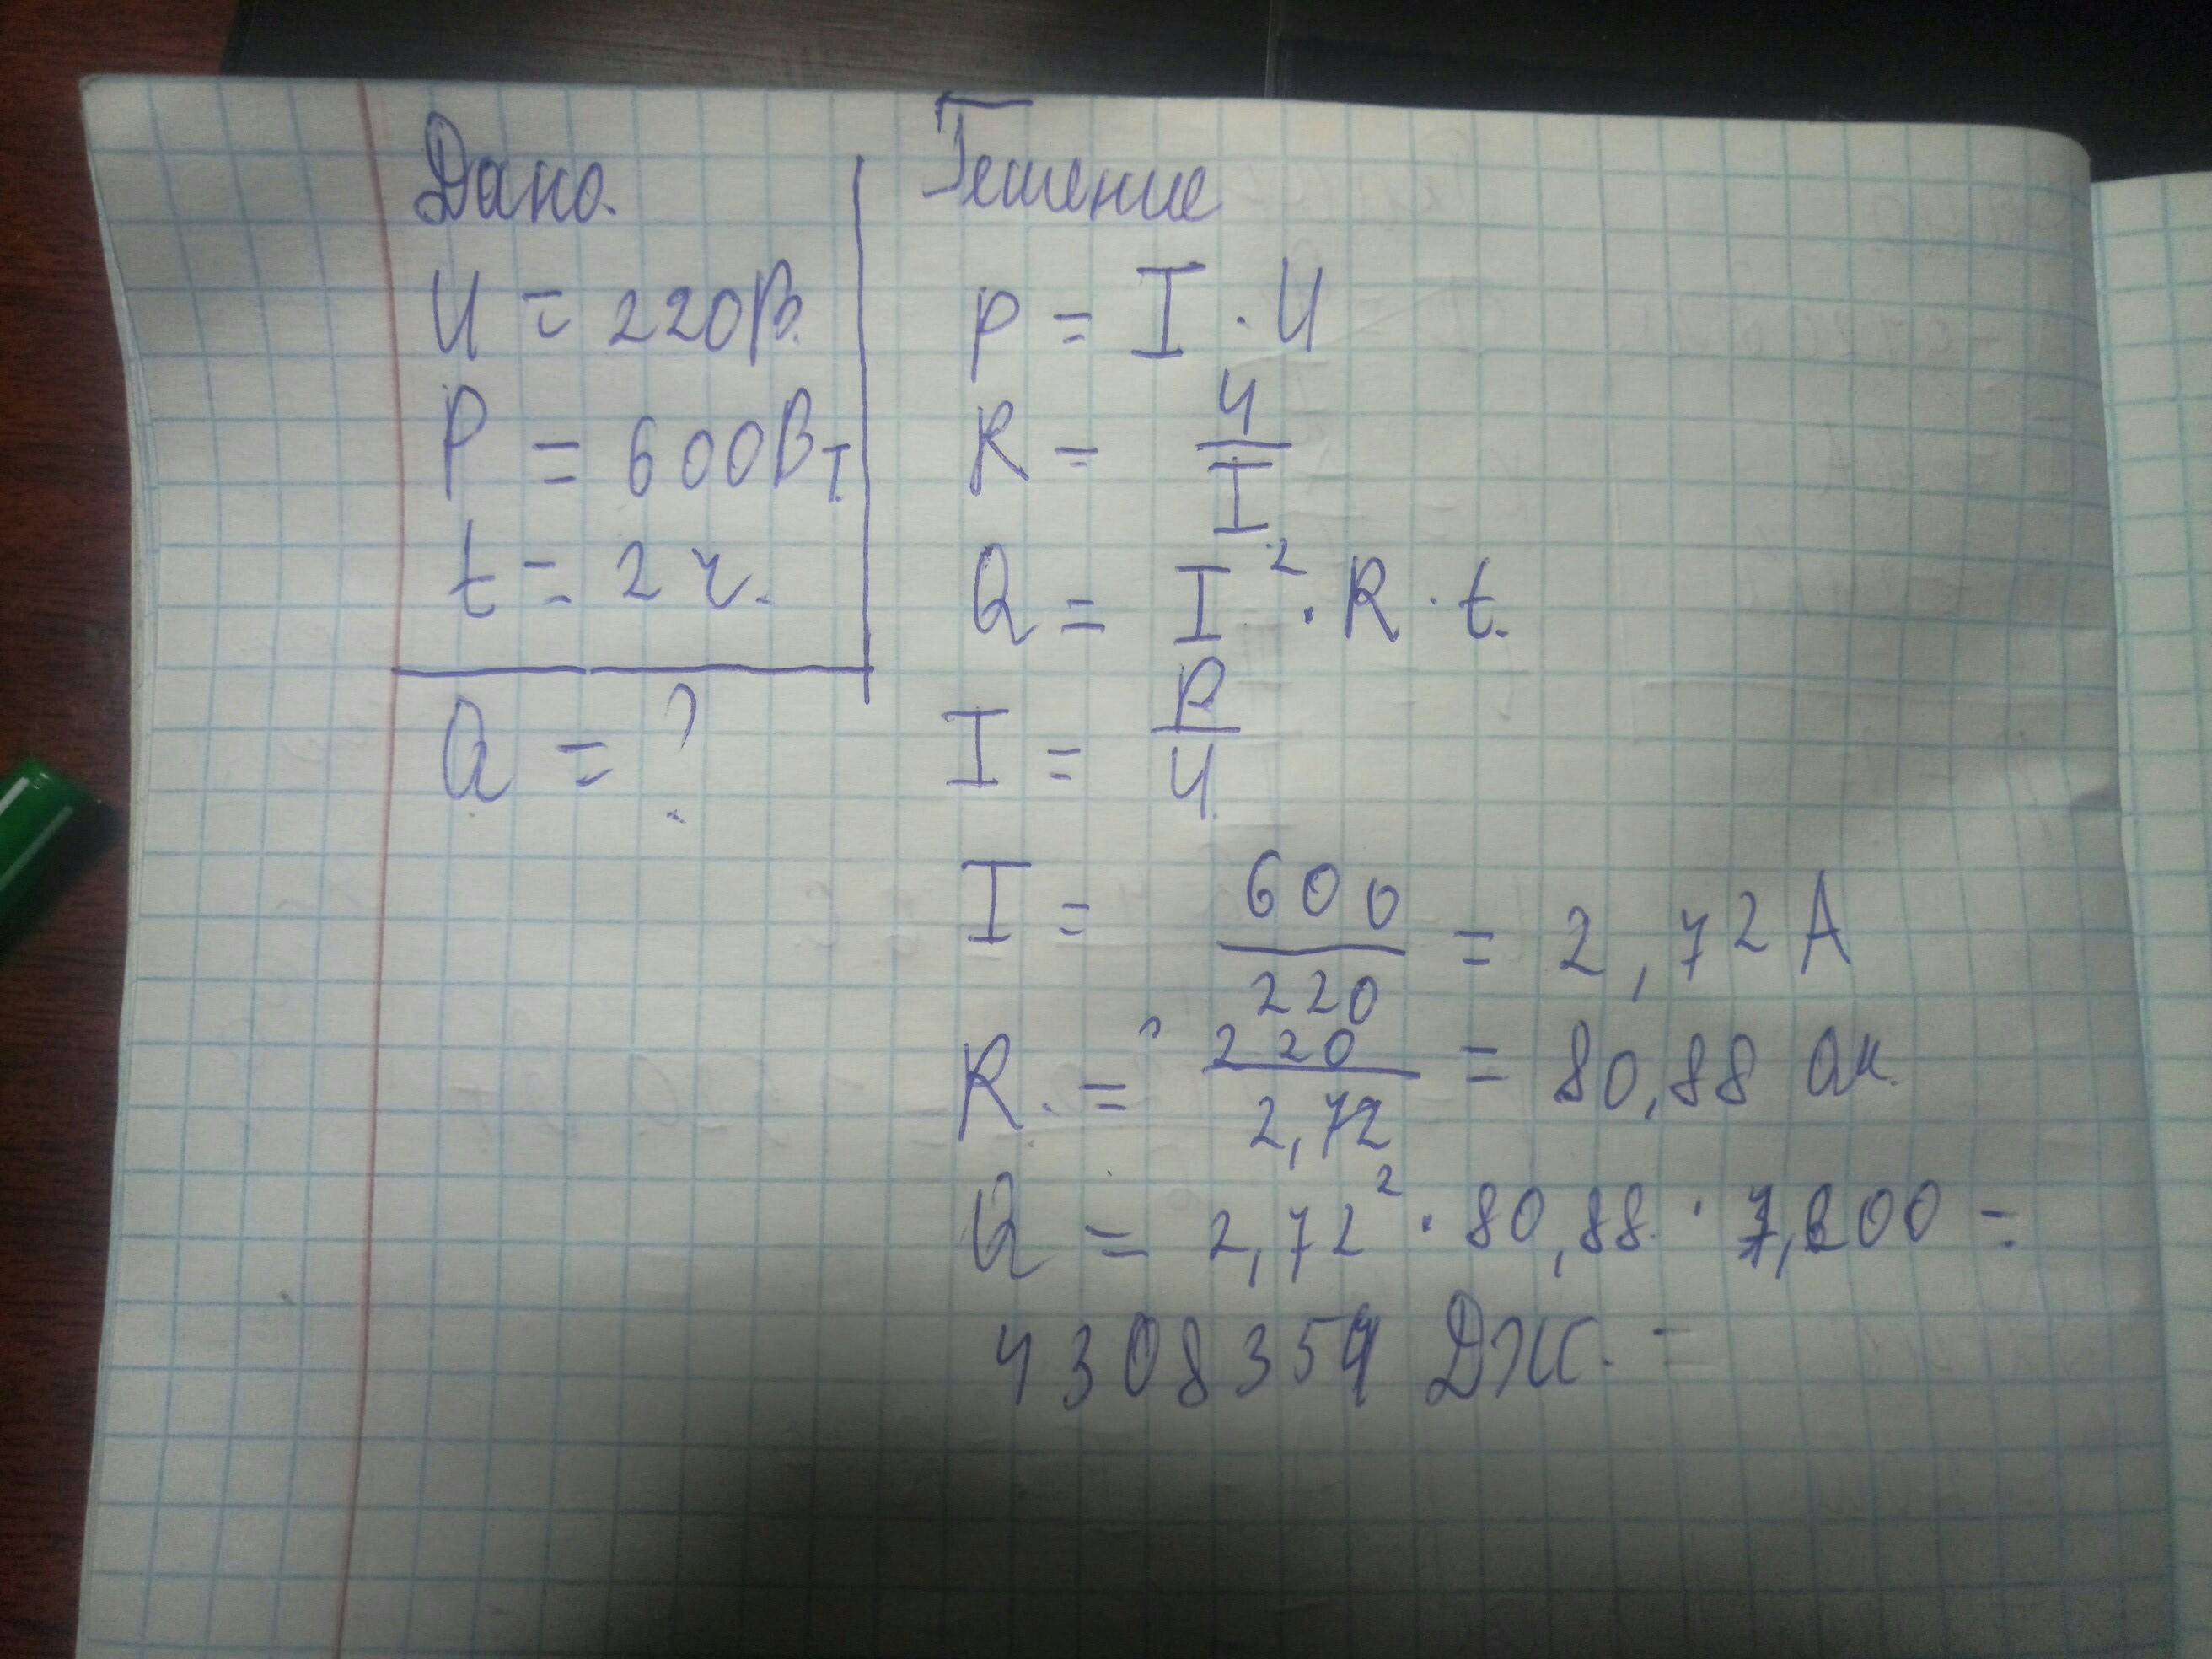 Дано.
U = 220В.
P = 600Вт.
t = 2 ч.
Q = ?
Решение
P = I · U
R = U/I
Q = I² · R · t.
I = P/U
I = 600/220 = 2,72 А
R = 220/2,72 = 80,88 Ом.
Q = 2,72² · 80,88 · 7200 =
4308354 Дж. =